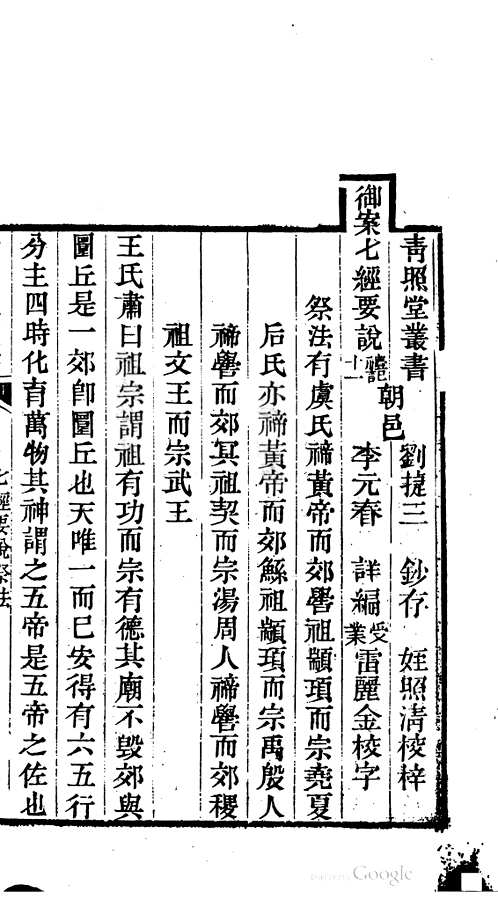 青照堂叢書 劉捷三 鈔存 姪照清校梓
御案七經要說 禮記十二 朝邑 李元春 詳編 受業 雷麗金校字
祭法有虞氏禘黃帝而郊嚳祖顓頊而宗堯夏
后氏亦禘黃帝而郊鯀祖顓頊而宗禹殷人
禘嚳而郊冥祖契而宗湯周人禘嚳而郊稷
祖文王而宗武王
王氏肅曰祖宗謂祖有功而宗有德其廟不毀郊與
圜丘是一郊卽圜丘也天唯一而已安得有六五行
分主四時化育萬物其神謂之五帝是五帝之佐也
七經要說祭法
Google